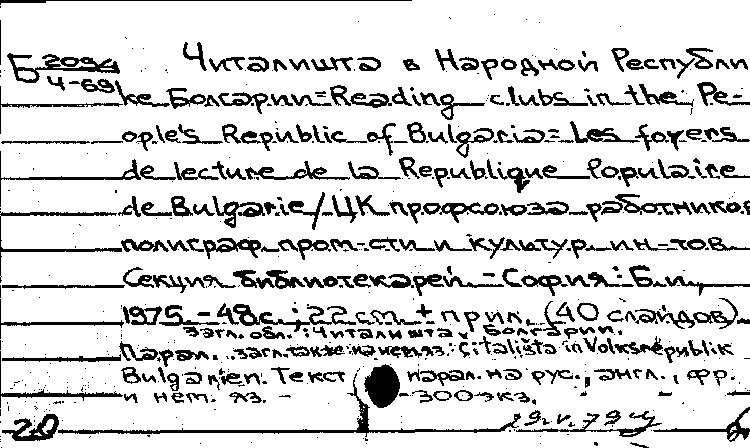 Б 2094
Ч-69
Читалишта в Народной Республи
ке Болгарии=Reading clubs in the Pe-
ople's Republic of Bulgaria= Les foyers
de lecture de la Republique Populaire
de Bulgarie/ЦК профсоюза работников
полиграф. пром-сти и культур. ин-тов.
Секция библиотекарей. - София: Б.и.,
1975.-48с.; 22cm. + прил. (40 слайдов).
Загл. обл.: Читалишта у Болгарии.
Парал. загл. также на нем. яз.: Çitališta in Volksrepublik
Bulgarien. Текст парал. на рус., англ., фр.
и нем. яз. - - 300экз.
20